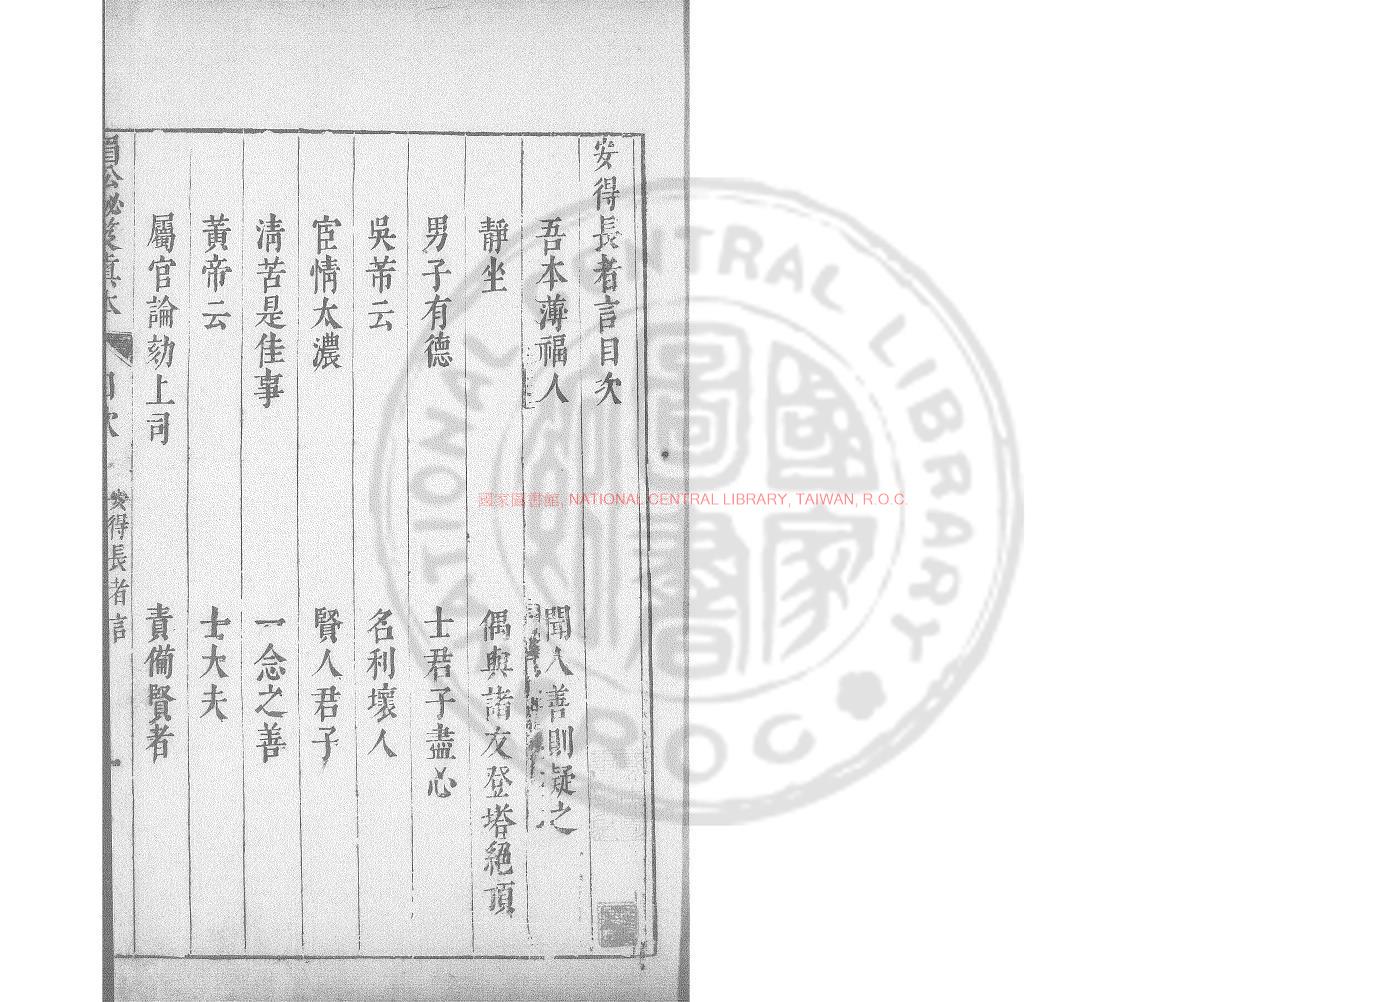 安得長者言目次
吾本薄福人　聞人善則疑之
靜坐　偶與諸友登塔絕頂
男子有德　士君子盡心
吳芾云　名利壞人
宦情太濃　賢人君子
清苦是佳事　一念之善
黃帝云　士大夫
屬官論劾上司　責備賢者
眉公祕笈真本　目次　安得長者言　一
國家圖書館, NATIONAL CENTRAL LIBRARY, TAIWAN, R.O.C.
NATIONAL CENTRAL LIBRARY
ROC
國家圖書